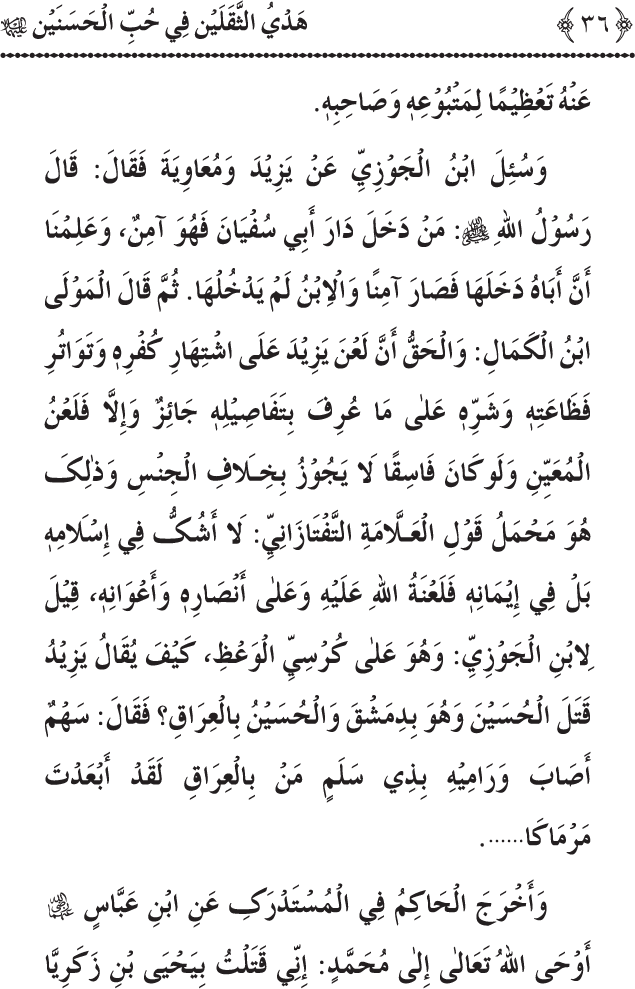 ﴿٣٦﴾ هَدْيُ الثَّقَلَيْن فِي حُبِّ الْحَسَنَيْن
عَنْهُ تَعْظِيْمًا لِمَتْبُوْعِهٖ وَصَاحِبِهٖ.
وَسُئِلَ ابْنُ الْجَوْزِيِّ عَنْ يَزِيْدَ وَمُعَاوِيَةَ فَقَالَ: قَالَ
رَسُوْلُ اللهِ ﷺ: مَنْ دَخَلَ دَارَ أَبِي سُفْيَانَ فَهُوَ آمِنٌ، وَعَلِمْنَا
أَنَّ أَبَاهُ دَخَلَهَا فَصَارَ آمِنًا وَالْاِبْنُ لَمْ يَدْخُلْهَا. ثُمَّ قَالَ الْمَوْلَى
ابْنُ الْكَمَالِ: وَالْحَقُّ أَنَّ لَعْنَ يَزِيْدَ عَلَى اشْتِهَارِ كُفْرِهٖ وَتَوَاتُرِ
فَظَاعَتِهٖ وَشَرِّهٖ عَلىٰ مَا عُرِفَ بِتَفَاصِيْلِهٖ جَائِزٌ وَإِلَّا فَلَعْنُ
الْمُعَيَّنِ وَلَوْكَانَ فَاسِقًا لَا يَجُوْزُ بِخِلَافِ الْجِنْسِ وَذٰلِكَ
هُوَ مَحْمَلُ قَوْلِ الْعَلَّامَةِ التَّفْتَازَانِيِّ: لَا أَشُكُّ فِي إِسْلَامِهٖ
بَلْ فِي إِيْمَانِهٖ فَلَعْنَةُ اللهِ عَلَيْهِ وَعَلىٰ أَنْصَارِهٖ وَأَعْوَانِهٖ، قِيْلَ
لِابْنِ الْجَوْزِيِّ: وَهُوَ عَلىٰ كُرْسِيِّ الْوَعْظِ، كَيْفَ يُقَالُ يَزِيْدُ
قَتَلَ الْحُسَيْنَ وَهُوَ بِدِمَشْقَ وَالْحُسَيْنُ بِالْعِرَاقِ؟ فَقَالَ: سَهْمٌ
أَصَابَ وَرَامِيْهِ بِذِي سَلَمٍ مَنْ بِالْعِرَاقِ لَقَدْ أَبْعَدْتَ
مَرْمَاكَا......
وَأَخْرَجَ الْحَاكِمُ فِي الْمُسْتَدْرَكِ عَنِ ابْنِ عَبَّاسٍ
أَوْحَى اللهُ تَعَالىٰ إِلىٰ مُحَمَّدٍ: إِنِّي قَتَلْتُ بِيَحْيَى بْنِ زَكَرِيَّا